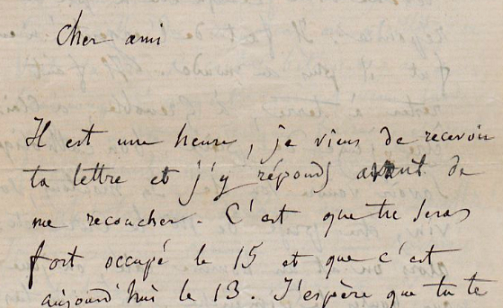 Cher ami
Il est une heure, je viens de recevoir
ta lettre et j'y réponds avant de
me recoucher. C'est que tu seras
fort occupé le 15 et que c'est
aujourd'hui le 13. J'espère que tu te